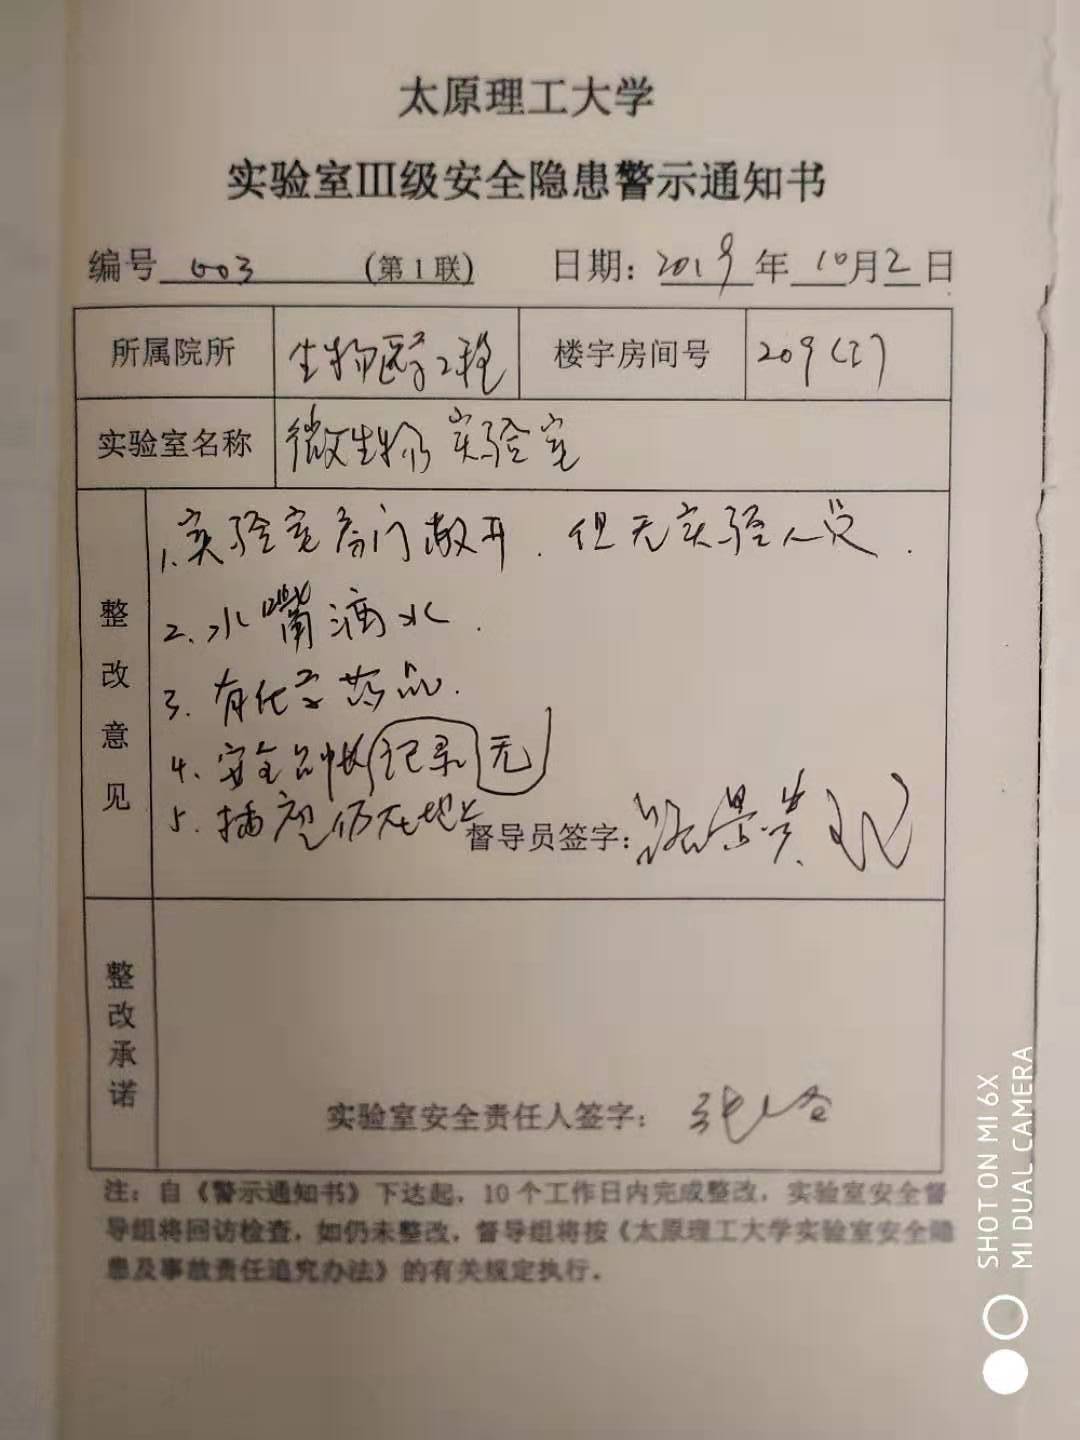 太原理工大学
实验室III级安全隐患警示通知书
编号 003 (第1联) 日期: 2019年10月2日
所属院所 生物医学工程 楼宇房间号 209(工)
实验室名称 微生物实验室
整改意见
1.实验室房门敞开.但无实验人员.
2.水嘴滴水.
3.有化学药品.
4.安全台帐记录无
5.插座仍在地上
督导员签字:
整改承诺
实验室安全责任人签字:
注:自《警示通知书》下达起,10个工作日内完成整改,实验室安全督
导组将回访检查,如仍未整改,督导组将按《太原理工大学实验室安全隐
患及事故责任追究办法》的有关规定执行.
SHOT ON MI 6X
MI DUAL CAMERA